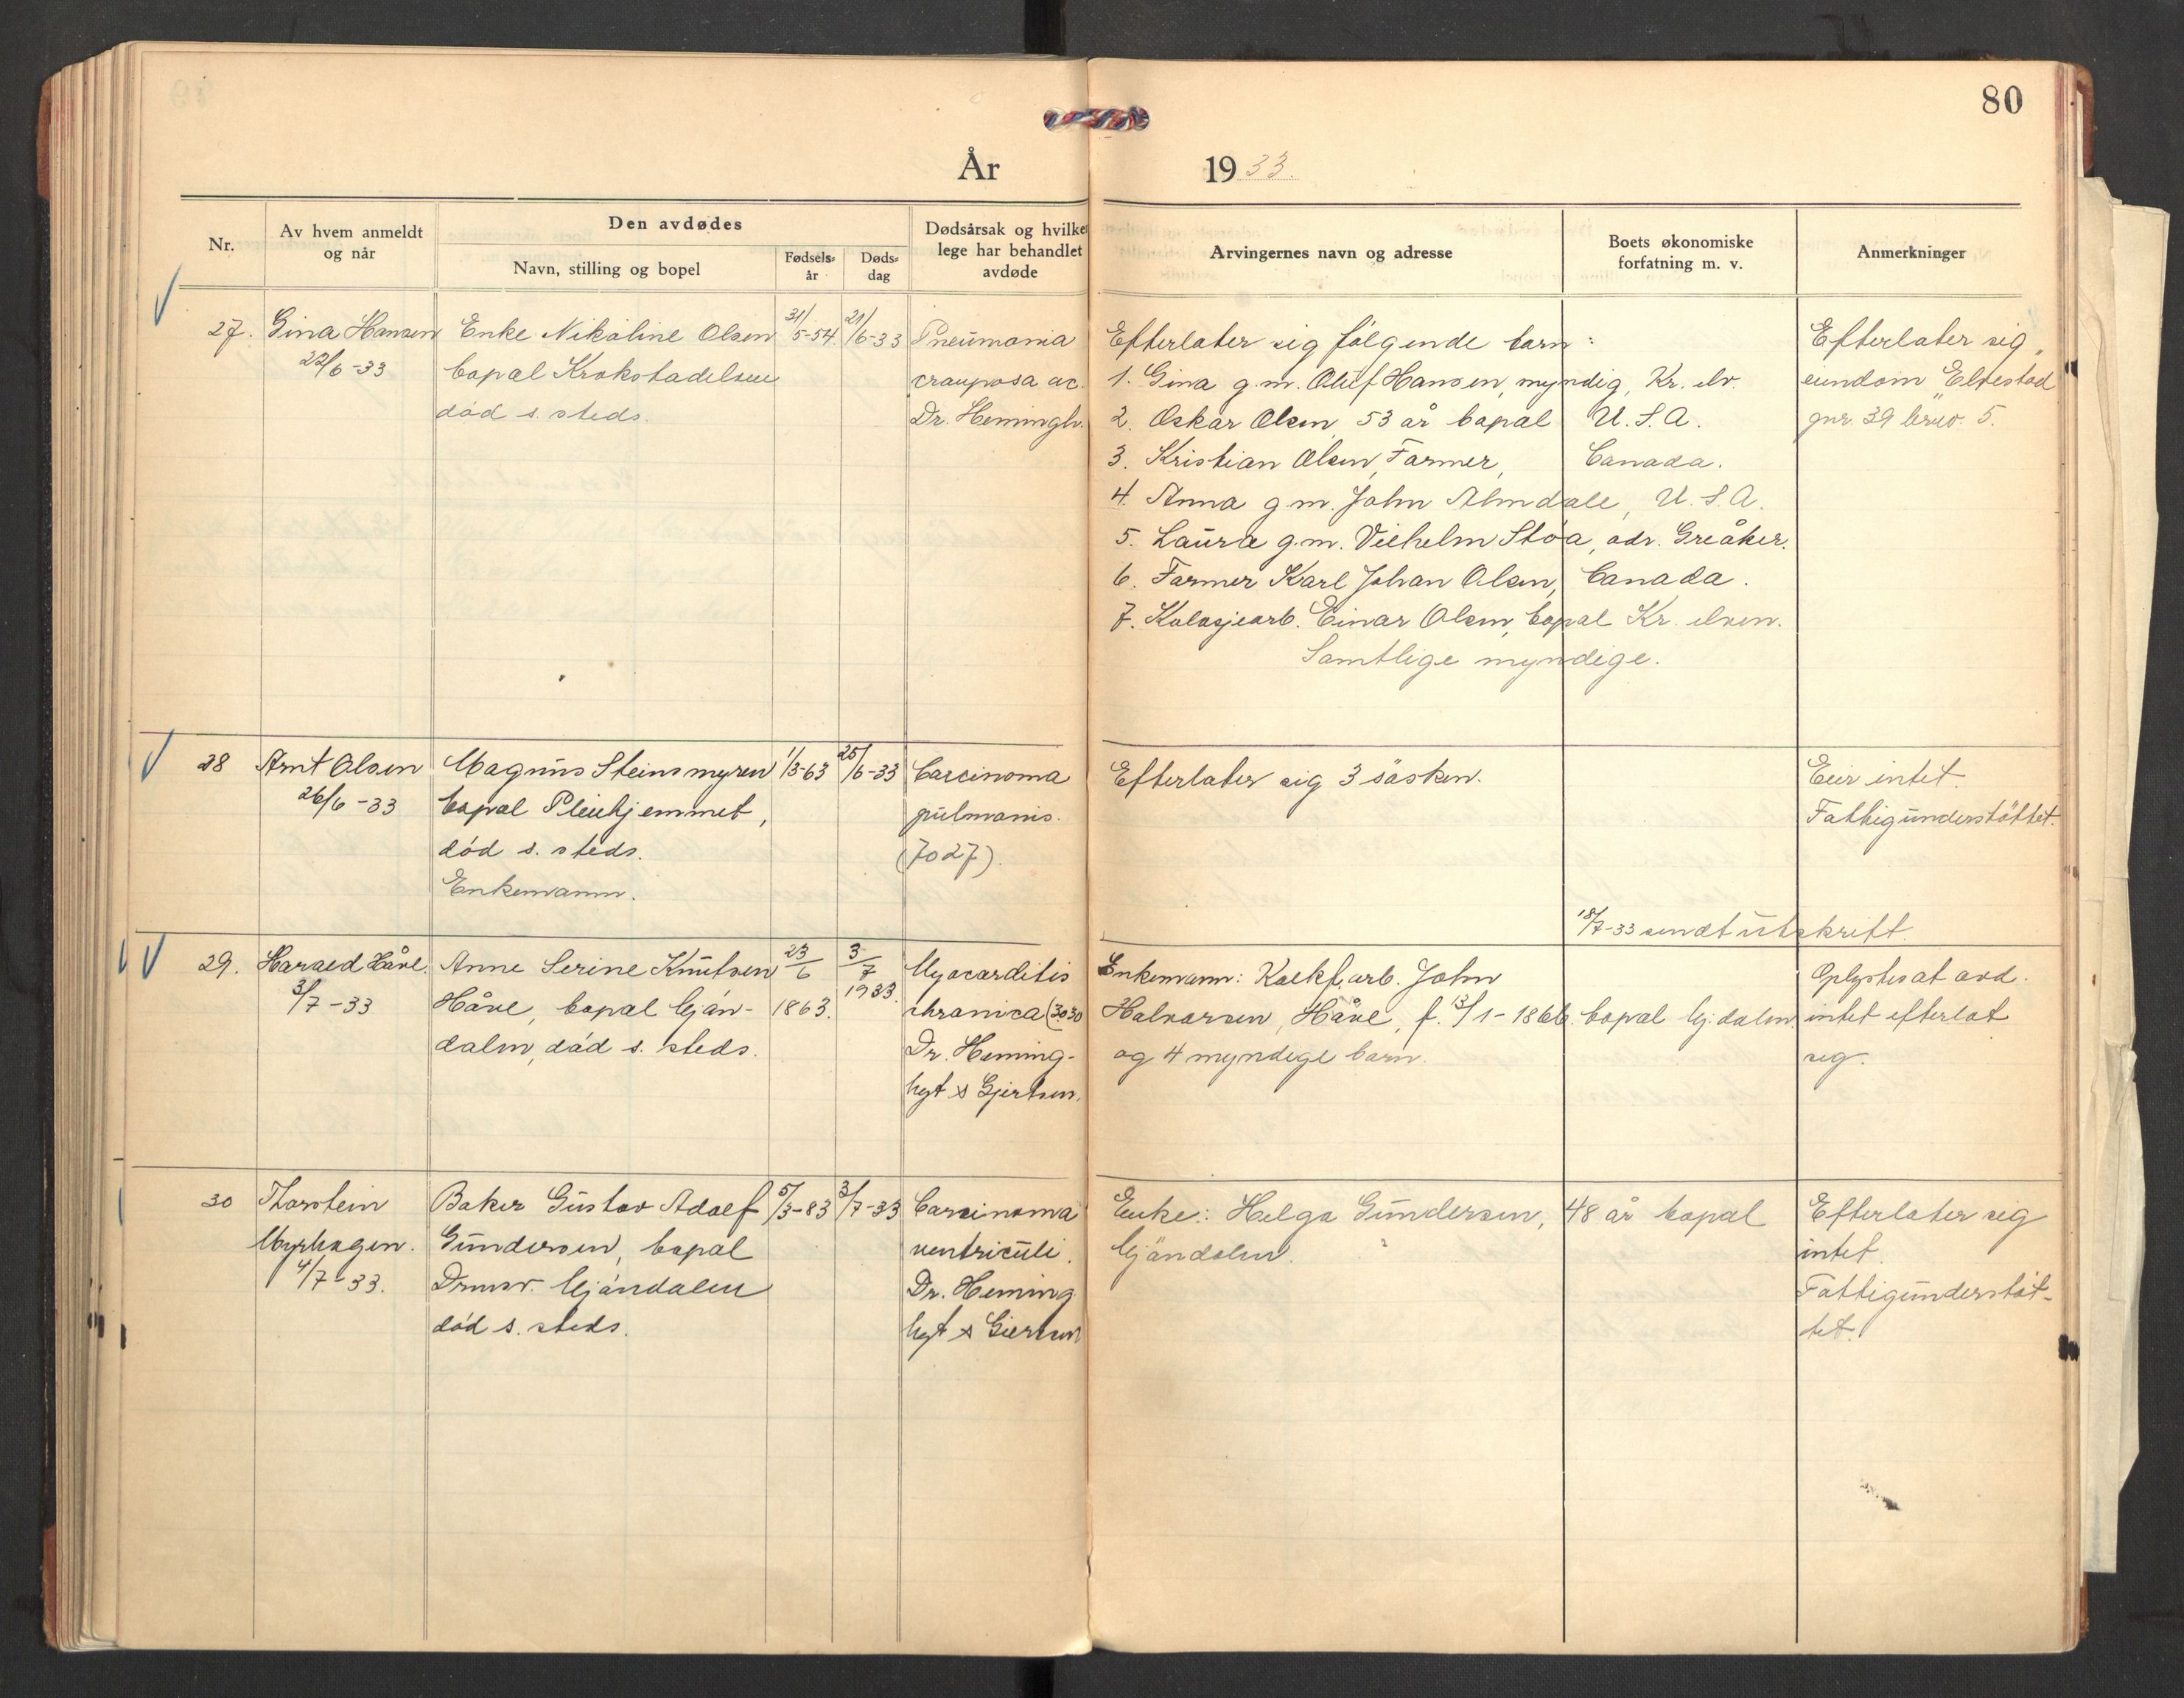 80
År 1933.
Nr.
Av hvem anmeldt og når
Den avdødes
Navn, stilling og bopel
Fødsels-år
Døds-dag
Dødsårsak og hvilke lege har behandlet avdøde
Arvingernes navn og adresse
Boets økonomiske forfatning m. v.
Anmerkninger
27. Gina Hansen
22/6-33
Enke Nikoline Olsen
bopal Krokstadelven
død s. steds.
31/5-54
21/6-33
Pneumonia
crouposa ac.
Dr. Hemingh.
Efterlater sig følgende barn:
1. Gina g.m. Oluf Hansen, myndig, Kr. elv.
2. Oskar Olsen, 53 år bopal U.S.A.
3. Kristian Olsen, Farmer, Canada.
4. Anna g.m. John Almdale, U.S.A.
5. Laura g.m. Vilhelm Stöa, adr. Greåker.
6. Farmer Karl Johan Olsen, Canada.
7. Kolosjearb. Einar Olsen, bopal Kr. elven.
Samtlige myndige.
Efterlater sig
eiendom "Elvestad"
gnr. 39 brno. 5.
28 Arnt Olsen
26/6-33
Magnus Steinsmyren
bopal Pleiehjemmet,
død s. steds.
Enkemann.
1/3-63
25/6-33
Carcinoma
pulmonis.
(7027).
Efterlater sig 3 sösken.
Eier intet.
Fattigunderstöttet.
18/7-33 sendt utskrift.
29. Harald Håve.
3/7-33
Anne Serine Knutsen
Håve, bopal Mjøn-
dalen, død s. steds.
23/6
1863.
3/7
1933.
Myocarditis
chronica (3030
Dr. Heming-
hyt & Gjertsen.
Enkemann: Kalkf.arb. John
Halvorsen, Håve, f. 13/1-1866. bopal Mj.dalen
og 4 myndige barn.
Oplystes at avd.
intet efterlot
sig.
30 Thorstein
Myrhagen.
4/7-33.
Baker Gustav Adolf
Gundersen, bopal
Drmsv. Mjøndalen
død s. steds.
5/3-83
3/7-33
Carcinoma
ventriculi.
Dr. Heming
hyt & Giertsen
Enke: Helga Gundersen, 48 år bopal
Mjöndalen.
Efterlater sig
intet.
Fattigunderstøt-
tet.